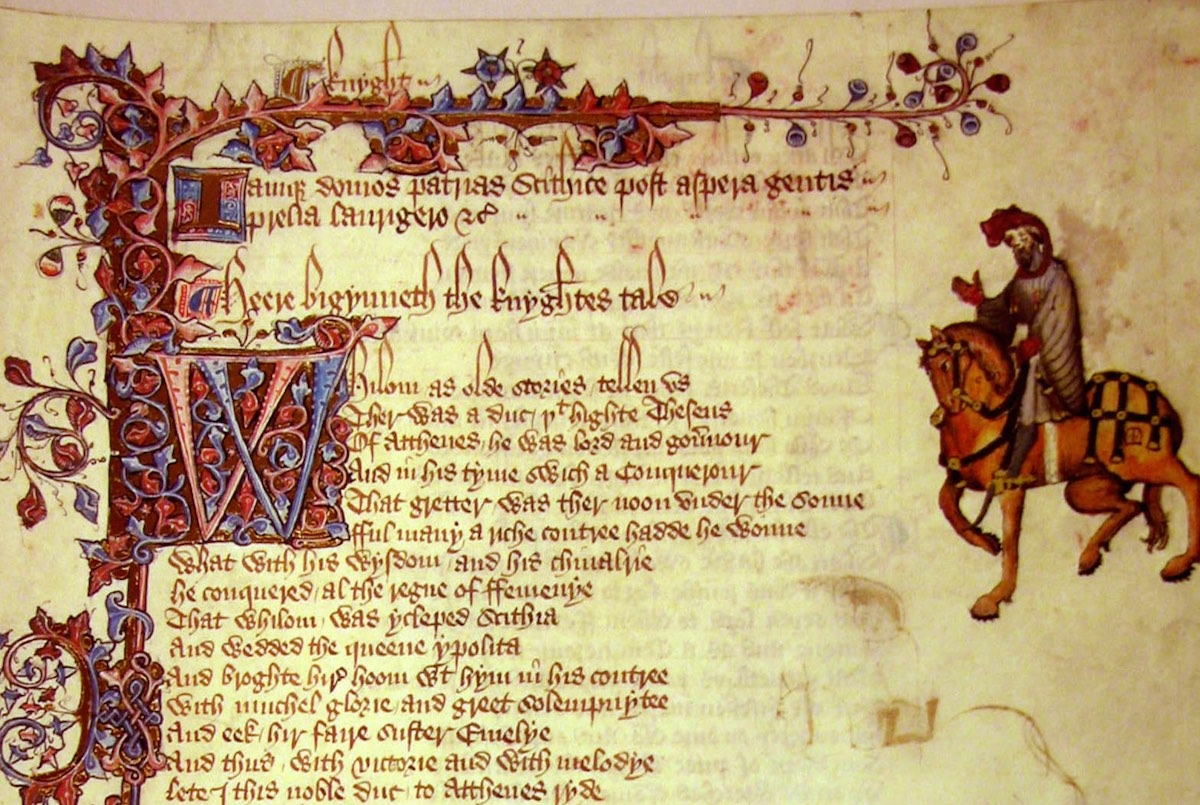 Knyght
Iamq; domos patrias Scithice post aspera gentis
prelia laurigero &c
Heere bigynneth the knyghtes tale
Whilom as olde stories tellen vs
Ther was a duc / þᵗ highte Theseus
Of Atthenes he was lord and gou̾nour
And in his tyme swich a Conquerour
That gretter was ther noon vnder the sonne
fful many a riche contree hadde he wonne
What with his wysdom and his chiualrie
he conquered al the regne of ffemenye
That whilom was ycleped Scithia
And wedded the queene ypolita
And broghte hir̾ hoom wᵗ hym in his contree
With muchel glorie and greet solempnytee
And eek hir faire suster Emelye
And thus with victorie and with melodye
lete I this noble duc to Atthenes ryde